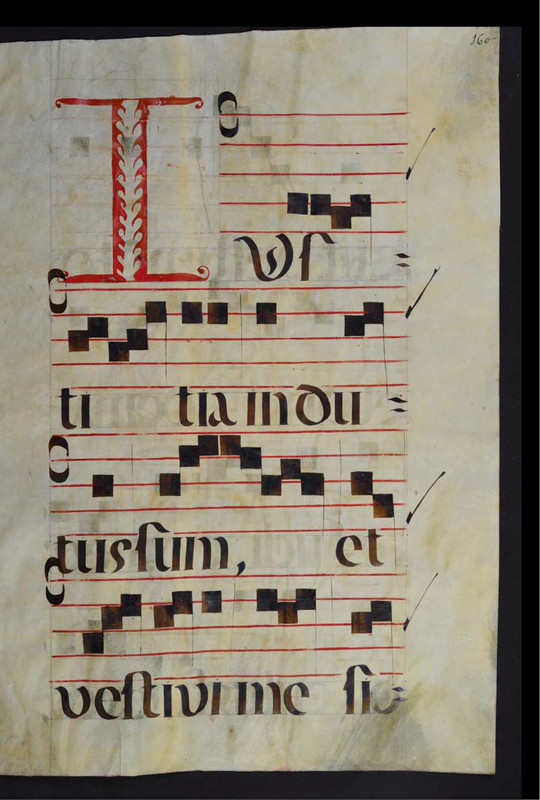 160
IUS=
ti tia indu=
tus sum, et
vestivi me si=